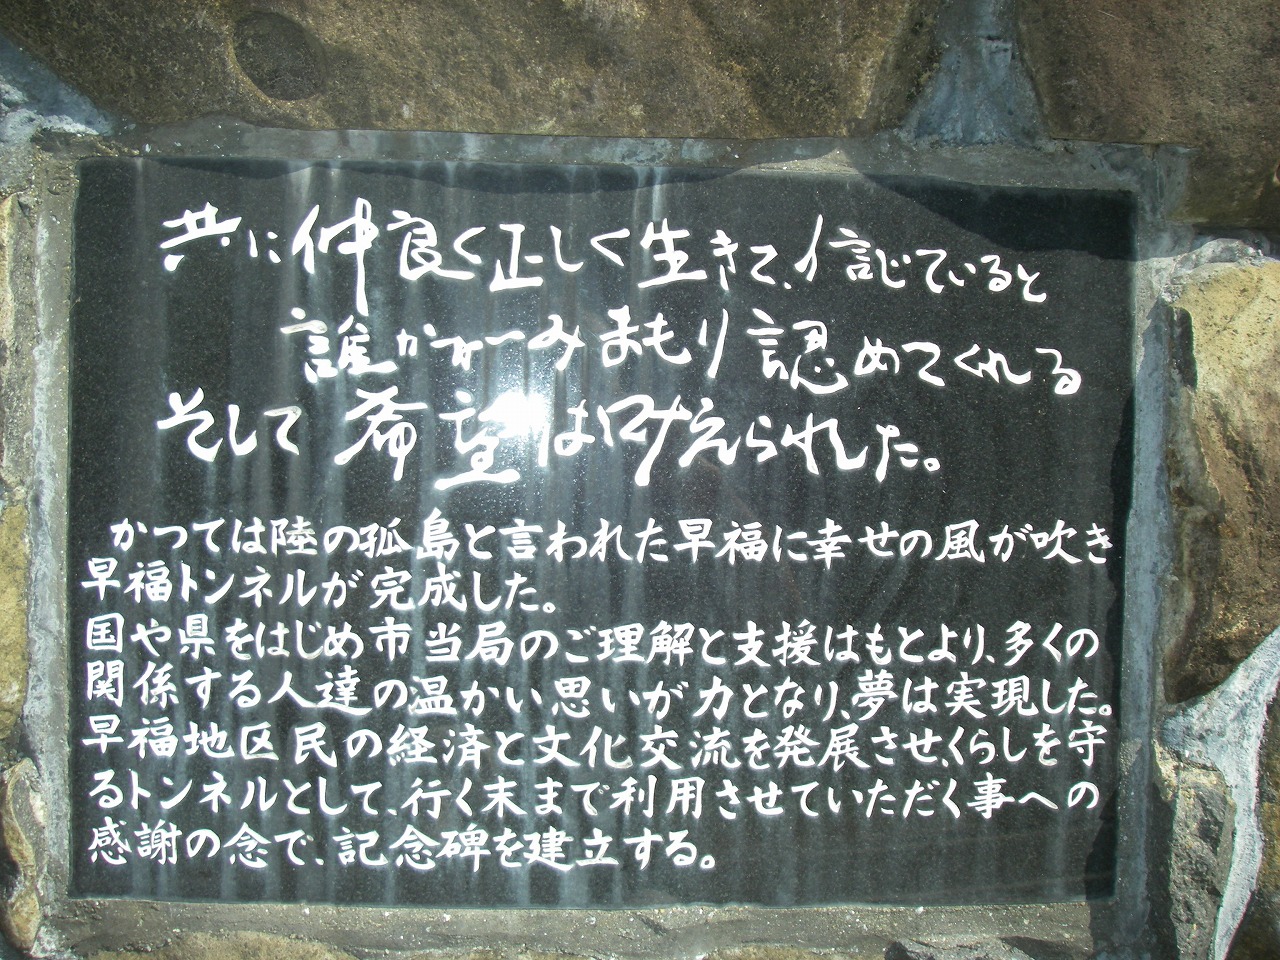 共に仲良く正しく生きて、信じていると
誰かがみまもり認めてくれる
そして希望は叶えられた。
かつては陸の孤島と言われた早福に幸せの風が吹き
早福トンネルが完成した。
国や県をはじめ市当局のご理解と支援はもとより、多くの
関係する人達の温かい思いが力となり、夢は実現した。
早福地区民の経済と文化交流を発展させ、くらしを守
るトンネルとして、行く末まで利用させていただく事への
感謝の念で、記念碑を建立する。